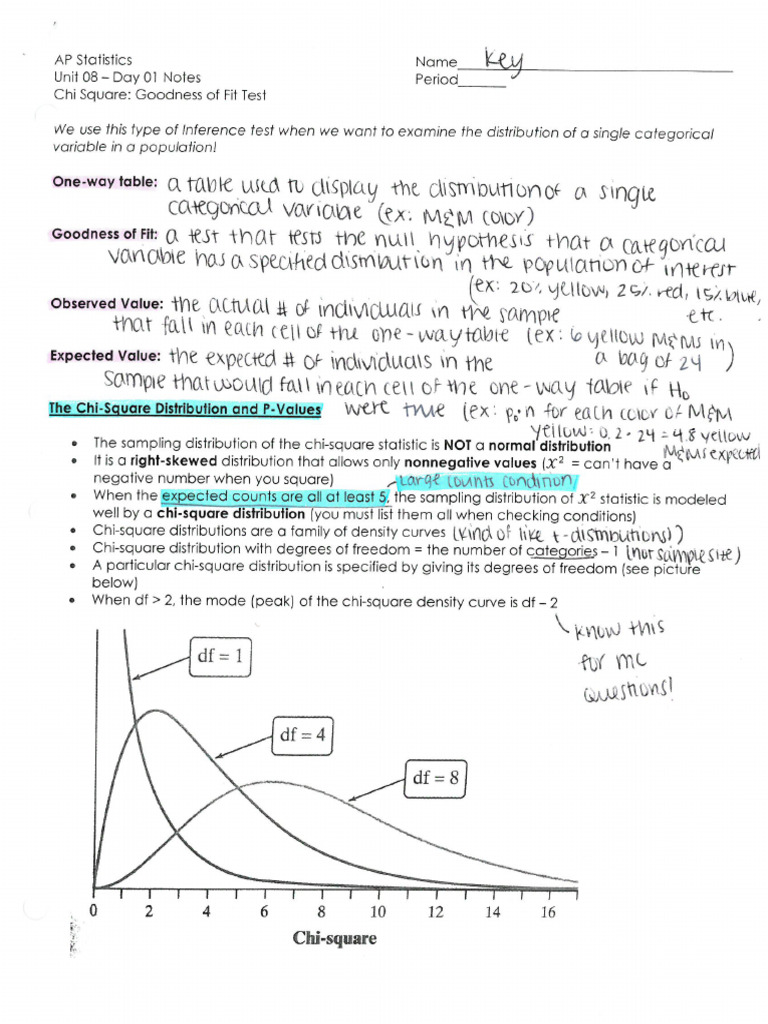 AP Statistics
Name Key
Unit 08 – Day 01 Notes
Period
Chi Square: Goodness of Fit Test
We use this type of Inference test when we want to examine the distribution of a single categorical
variable in a population!
One-way table: a table used to display the distribution of a single
categorical variable (ex: M&M color)
Goodness of Fit: a test that tests the null hypothesis that a categorical
variable has a specified distribution in the population of interest
(ex: 20% yellow, 25% red, 15% blue,
etc.
Observed Value: the actual # of individuals in the sample
that fall in each cell of the one-way table (ex: 6 yellow M&Ms in
a bag of 24)
Expected Value: the expected # of individuals in the
sample that would fall in each cell of the one-way table if H₀
were true (ex: p₀·n for each color of M&M
yellow: 0.2 · 24 = 4.8 yellow
M&Ms expected
The Chi-Square Distribution and P-Values
• The sampling distribution of the chi-square statistic is NOT a normal distribution
• It is a right-skewed distribution that allows only nonnegative values (x² = can't have a
negative number when you square)
Large counts condition
• When the expected counts are all at least 5, the sampling distribution of x² statistic is modeled
well by a chi-square distribution (you must list them all when checking conditions)
• Chi-square distributions are a family of density curves (kind of like t-distributions!)
• Chi-square distribution with degrees of freedom = the number of categories – 1 (not sample size)
• A particular chi-square distribution is specified by giving its degrees of freedom (see picture
below)
• When df > 2, the mode (peak) of the chi-square density curve is df – 2
know this
for mc
questions!
df = 1
df = 4
df = 8
0 2 4 6 8 10 12 14 16
Chi-square